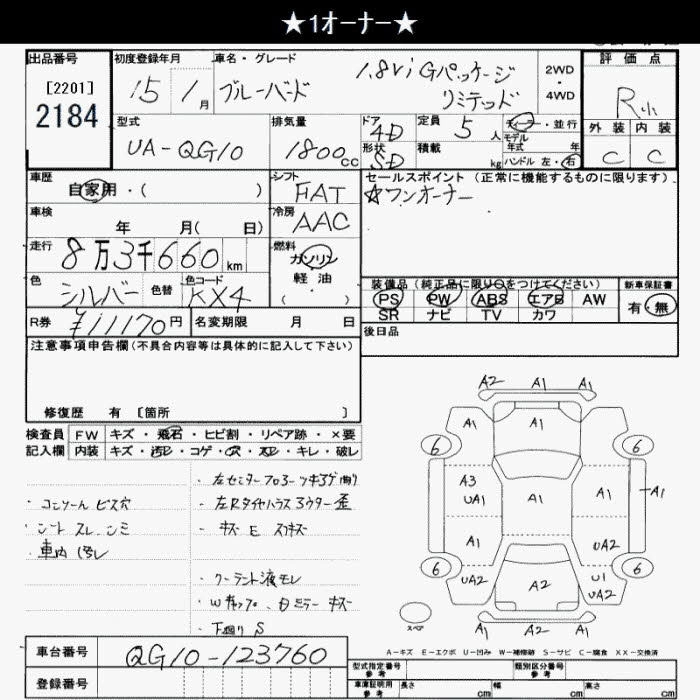 ★1オーナー★
出品番号 初度登録年月 車名・グレード 評価点
[2201]
2184
15 1月 ブルーバード 1.8Vi Gパッケージ リミテッド 2WD・4WD R小
型式 排気量 ドア 4D 定員 5人 ディーラー・並行 外装 内装
UA-QG10 1800cc 形状 SD 積載 kg モデル年式 年 ハンドル 左・右 C C
車歴 自家用・( ) シフト FAT セールスポイント (正常に機能するものに限ります)
☆ワンオーナー
車検 年 月( 日) 冷房 AAC
走行 8万3千660km 燃料 ガソリン 軽油 ( )
色 シルバー 色替 色コード KX4
装備品(純正品に限り○をつけてください) 新車保証書
PS PW ABS エアB AW 有・無
SR ナビ TV カワ
R券 ¥11170円 名変期限 月 日 後日品
注意事項申告欄(不具合内容等は具体的に記入して下さい)
修復歴 有 [箇所 ]
検査員 FW キズ・飛石・ヒビ割・リペア跡・×要
記入欄 内装 キズ・汚レ・コゲ・穴・スレ・キレ・破レ
・コンソール ビス穴
・シート スレ、シミ
・車内 汚レ
・左Rタイヤハウス 3クウター 歪
・キズ E スリキズ
・クーラント液モレ
・下廻り S
A2 A1 A1
A1 A1
6 6
A3 UA1 A1 A1 A1
A1 UA2
6 6
UA2 A2 U1 UA2
A1 A2 A1
スペア
A-キズ E-エクボ U-凹み W-補修跡 S-サビ C-腐食 XX-交換済
車台番号 QG10-123760
登録番号
型式指定番号 参考 類別区分番号 参考
車庫証明用 参考 長さ cm 幅 cm 高さ cm